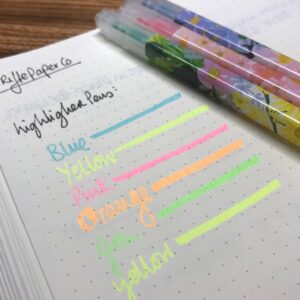 Rifle Paper Co
highlighter pens:
Blue
Yellow
Pink
Orange
Green
yellow